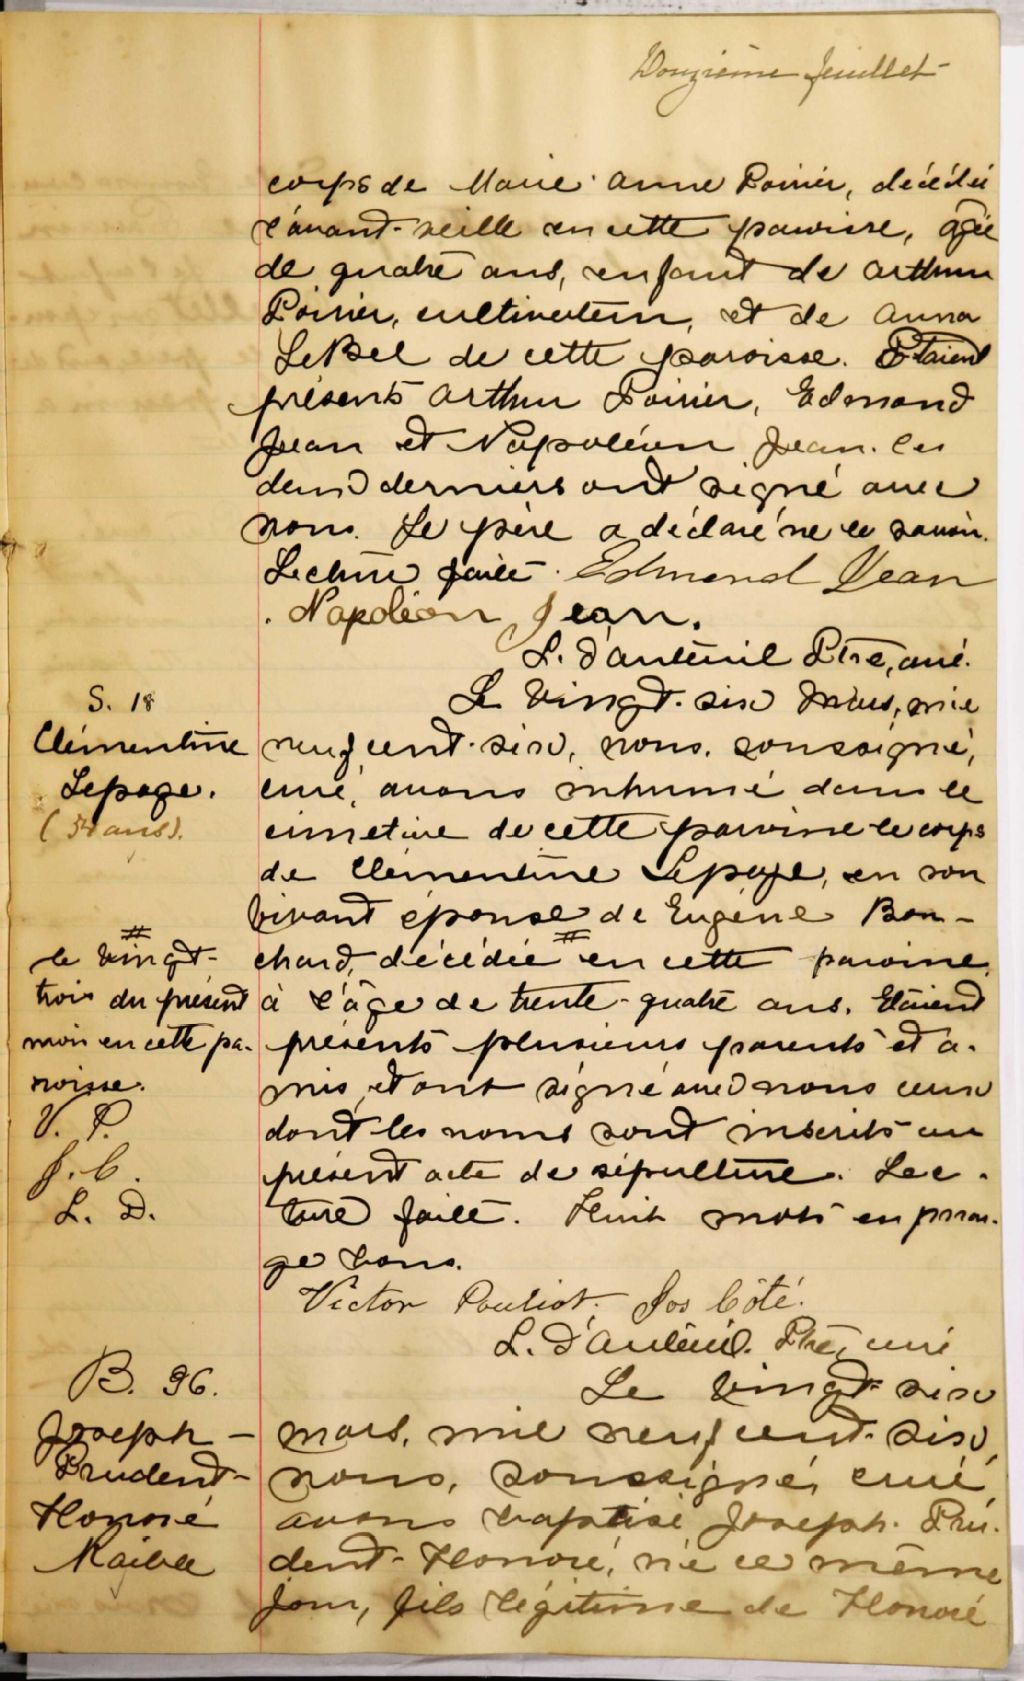 Douzième feuillet
corps de Marie Anne Poirier, décédée
l'avant-veille en cette paroisse, âgée
de quatre ans, enfant de Arthur
Poirier, cultivateur, et de Anna
LeBel de cette paroisse. Etaient
présents Arthur Poirier, Edmond
Jean et Napoléon Jean. Les
deux derniers ont signé avec
nous. Le père a déclaré ne le savoir.
Lecture faite. Edmond Jean
. Napoléon Jean.
L. d'auteuil Ptre, curé.
S. 18
Clémentine
Lepage.
(34 ans).
Le vingt-six mars, mil
neuf cent-six, nous, soussigné,
curé, avons inhumé dans le
cimetière de cette paroisse le corps
de Clémentine Lepage, en son
vivant épouse de Eugène Bou-
chard, décédée # en cette paroisse
à l'âge de trente-quatre ans. Etaient
présents plusieurs parents et a-
mis et ont signé avec nous ceux
dont les noms sont inscrits au
présent acte de sépulture. Lec-
ture faite. Huit mots en mar-
ge bons.
#
le vingt-
trois du présent
mois en cette pa-
roisse.
V. P.
J. C.
L. D.
Victor Pouliot. Jos Côté.
L. D'Auteuil. Ptre, curé
B. 36.
Joseph-
Prudent-
Honoré
Le vingt-six
mars, mil neuf cent-six,
nous, soussigné, curé,
avons baptisé Joseph-Pru-
dent-Honoré, né ce même
jour, fils légitime de Honoré